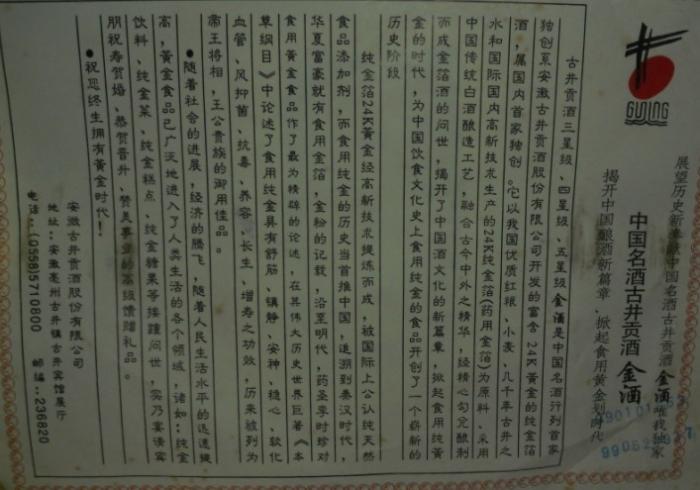 GUJING
展望历史新
中国名酒古井贡酒 金酒 唯我独家
揭开中国酿酒新篇章、掀起食用黄金划时代
中国名酒古井贡酒 金酒
古井贡酒三星级、四星级、五星级金酒是中国名酒行列首家
独创系安徽古井贡酒股份有限公司开发的富含24K黄金的纯金箔
酒,属国内首家独创。它以我国优质红粮、小麦、几千年古井之
水和国际国内高新技术生产的24K纯金箔(药用金箔)为原料、采用
中国传统白酒酿造工艺,融合古今中外之精华,经精心勾兑酿制
而成金箔酒的问世,揭开了中国酒文化的新篇章,掀起食用纯黄
金的时代,为中国饮食文化史上食用纯金的食品开创了一个崭新的
历史阶段
纯金箔24K黄金经高新技术提炼而成,被国际上公认纯天然
食品添加剂,而食用纯金的历史当首推中国,追溯到秦汉时代,
华夏富豪就有食用金箔,金粉的记载,沿至明代,药圣李时珍对
食用黄金食品作了最为精辟的论述,在其伟大历史世界巨著《本
草纲目》中论述了食用纯金具有舒筋、镇静、安神、稳心、软化
血管、风抑菌、抗毒、养容、长生、增寿之功效,历来被列为
帝王将相,王公贵族的御用佳品。
●随着社会的进展,经济的腾飞,随着人民生活水平的迅速提
高,黄金食品已广泛地进入了人类生活的各个领域,诸如:纯金
饮料、纯金菜、纯金糕点、纯金糖果等接踵问世,实乃宴请宾
朋祝寿贺婚、恭贺晋升、赞美事业的高级馈赠礼品。
●祝您终生拥有黄金时代!
安徽古井贡酒股份有限公司
地址:安徽亳州古井镇古井宾馆展厅
电话:(0558)5710800 邮编:236820